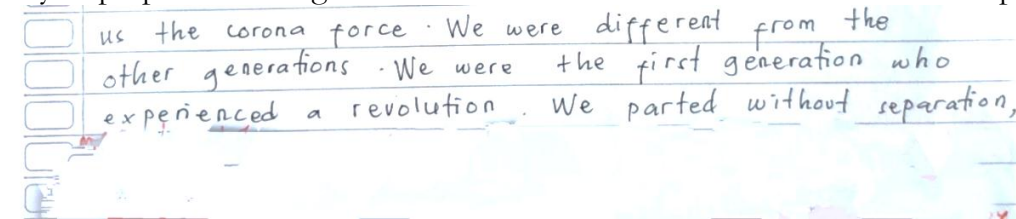 us the corona force . We were different from the
other generations . We were the first generation who
experienced a revolution . We parted without separation,